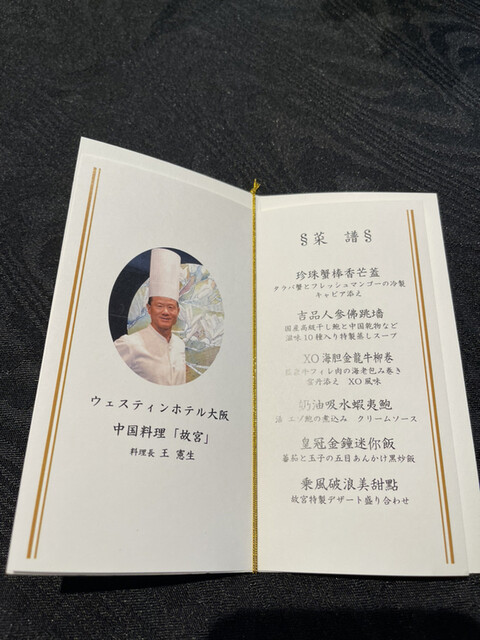 ウェスティンホテル大阪
中国料理「故宮」
料理長 王 憲生
§菜 譜§
珍珠蟹棒香芒蓋
タラバ蟹とフレッシュマンゴーの冷製
キャビア添え
吉品人参佛跳墻
国産高級干し鮑と中国乾物など
滋味10種入り特製蒸しスープ
XO海胆金龍牛柳巻
牛フィレ肉の海老包み巻き
雲丹添え XO風味
奶油吸水蝦夷鮑
活 エゾ鮑の煮込み クリームソース
皇冠金鐘迷你飯
蕃茄と玉子の五目あんかけ黒炒飯
乘風破浪美甜點
故宮特製デザート盛り合わせ